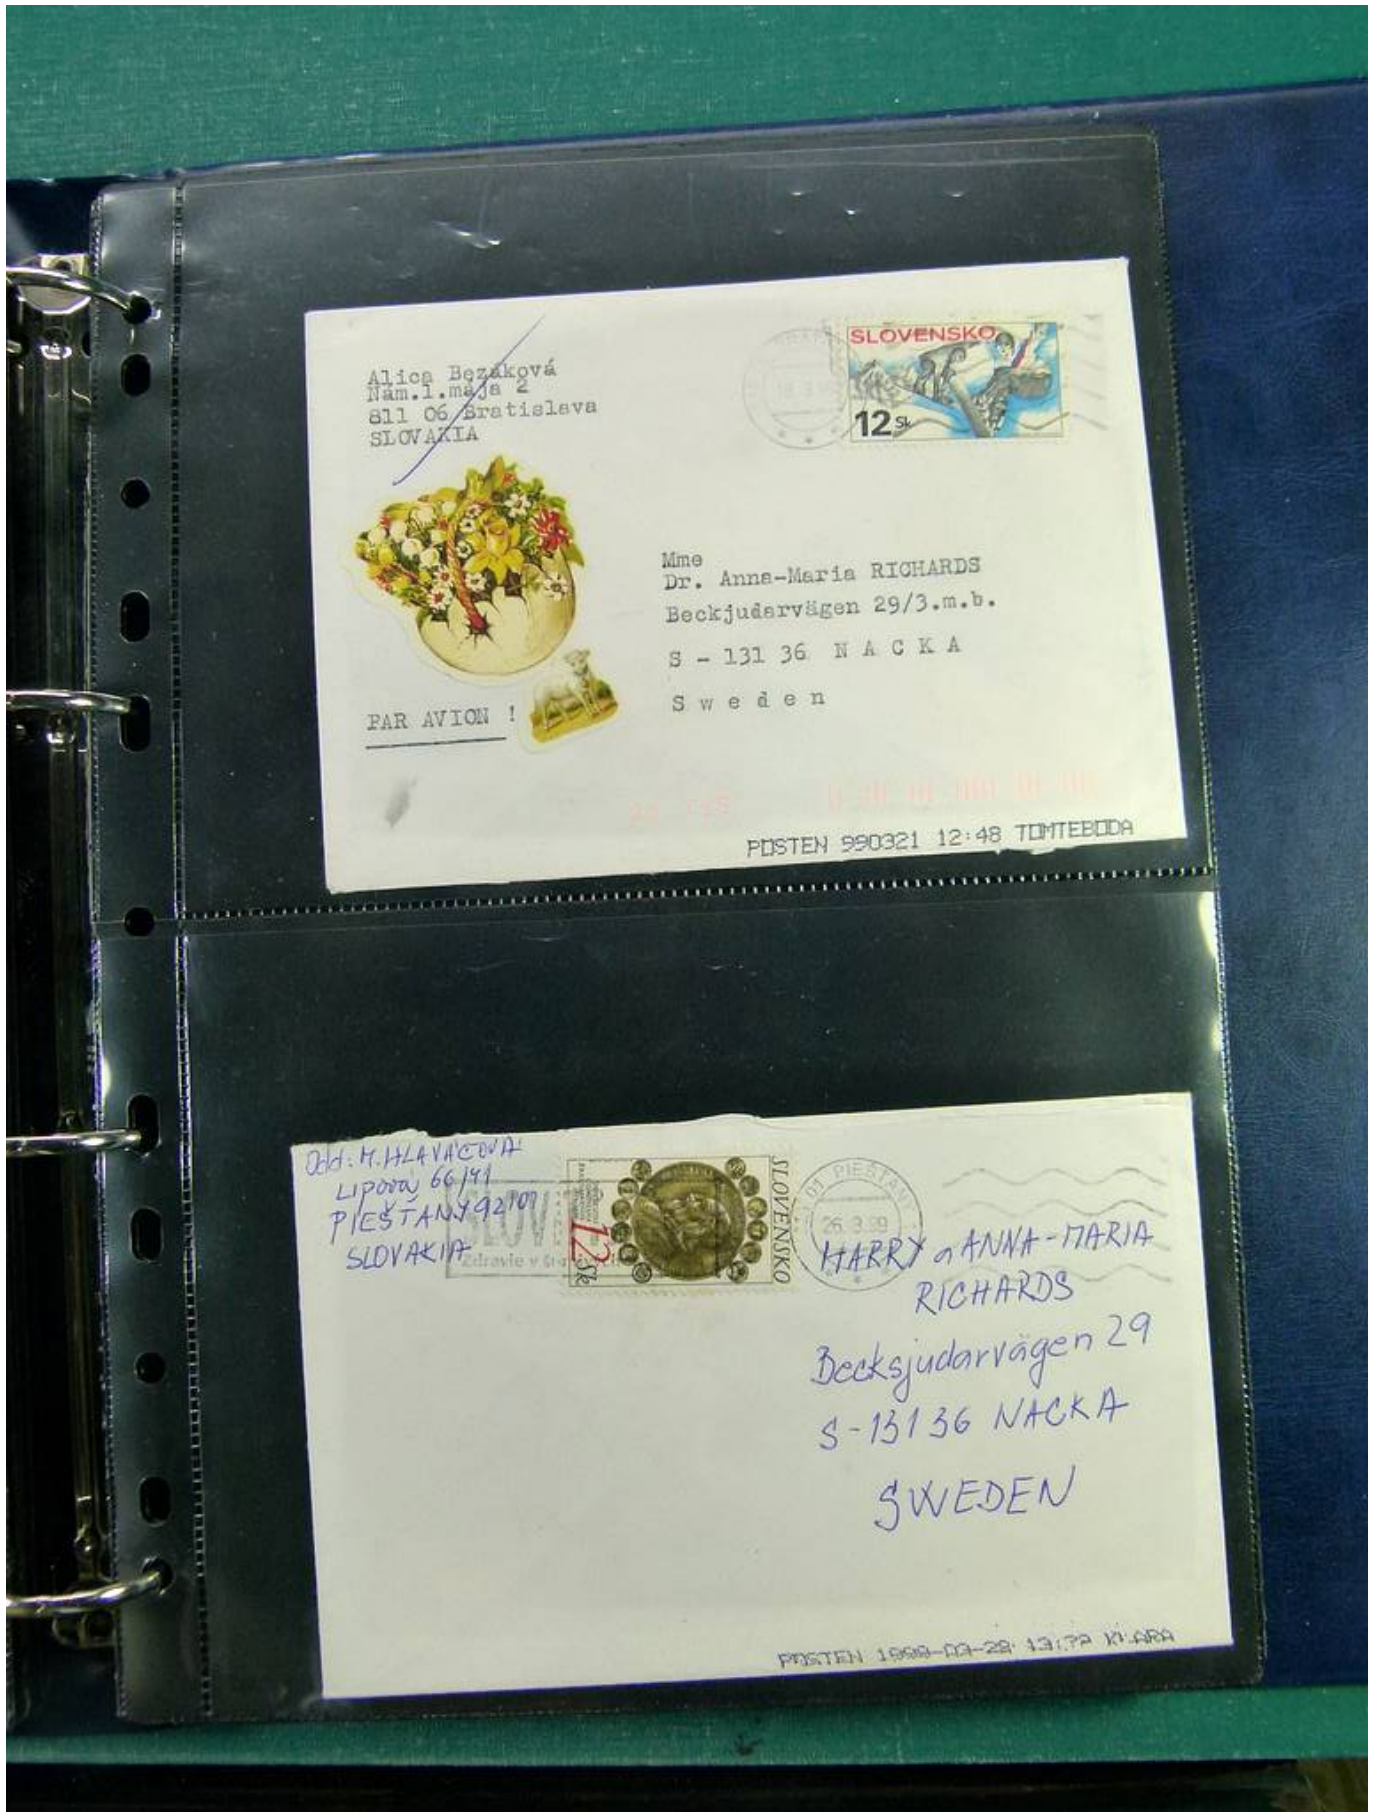 Alica Bezáková
Nám.1.mája 2
811 06 Bratislava
SLOVAKIA
SLOVENSKO
12 Sk
Mme
Dr. Anna-Maria RICHARDS
Beckjudarvägen 29/3.m.b.
S - 131 36 N A C K A
S w e d e n
PAR AVION !
POSTEN 990321 12:48 TOMTEBODA
Odd: M. HLAVÁČOVÁ
LIPOVÁ 66/41
PIEŠŤANY 92101
SLOVAKIA
Zdravie v
12 Sk
SLOVENSKO
01 PIEŠŤANY
26.3.99
HARRY a ANNA-MARIA
RICHARDS
Becksjudarvägen 29
S-13136 NACKA
SWEDEN
POSTEN 1999-03-28